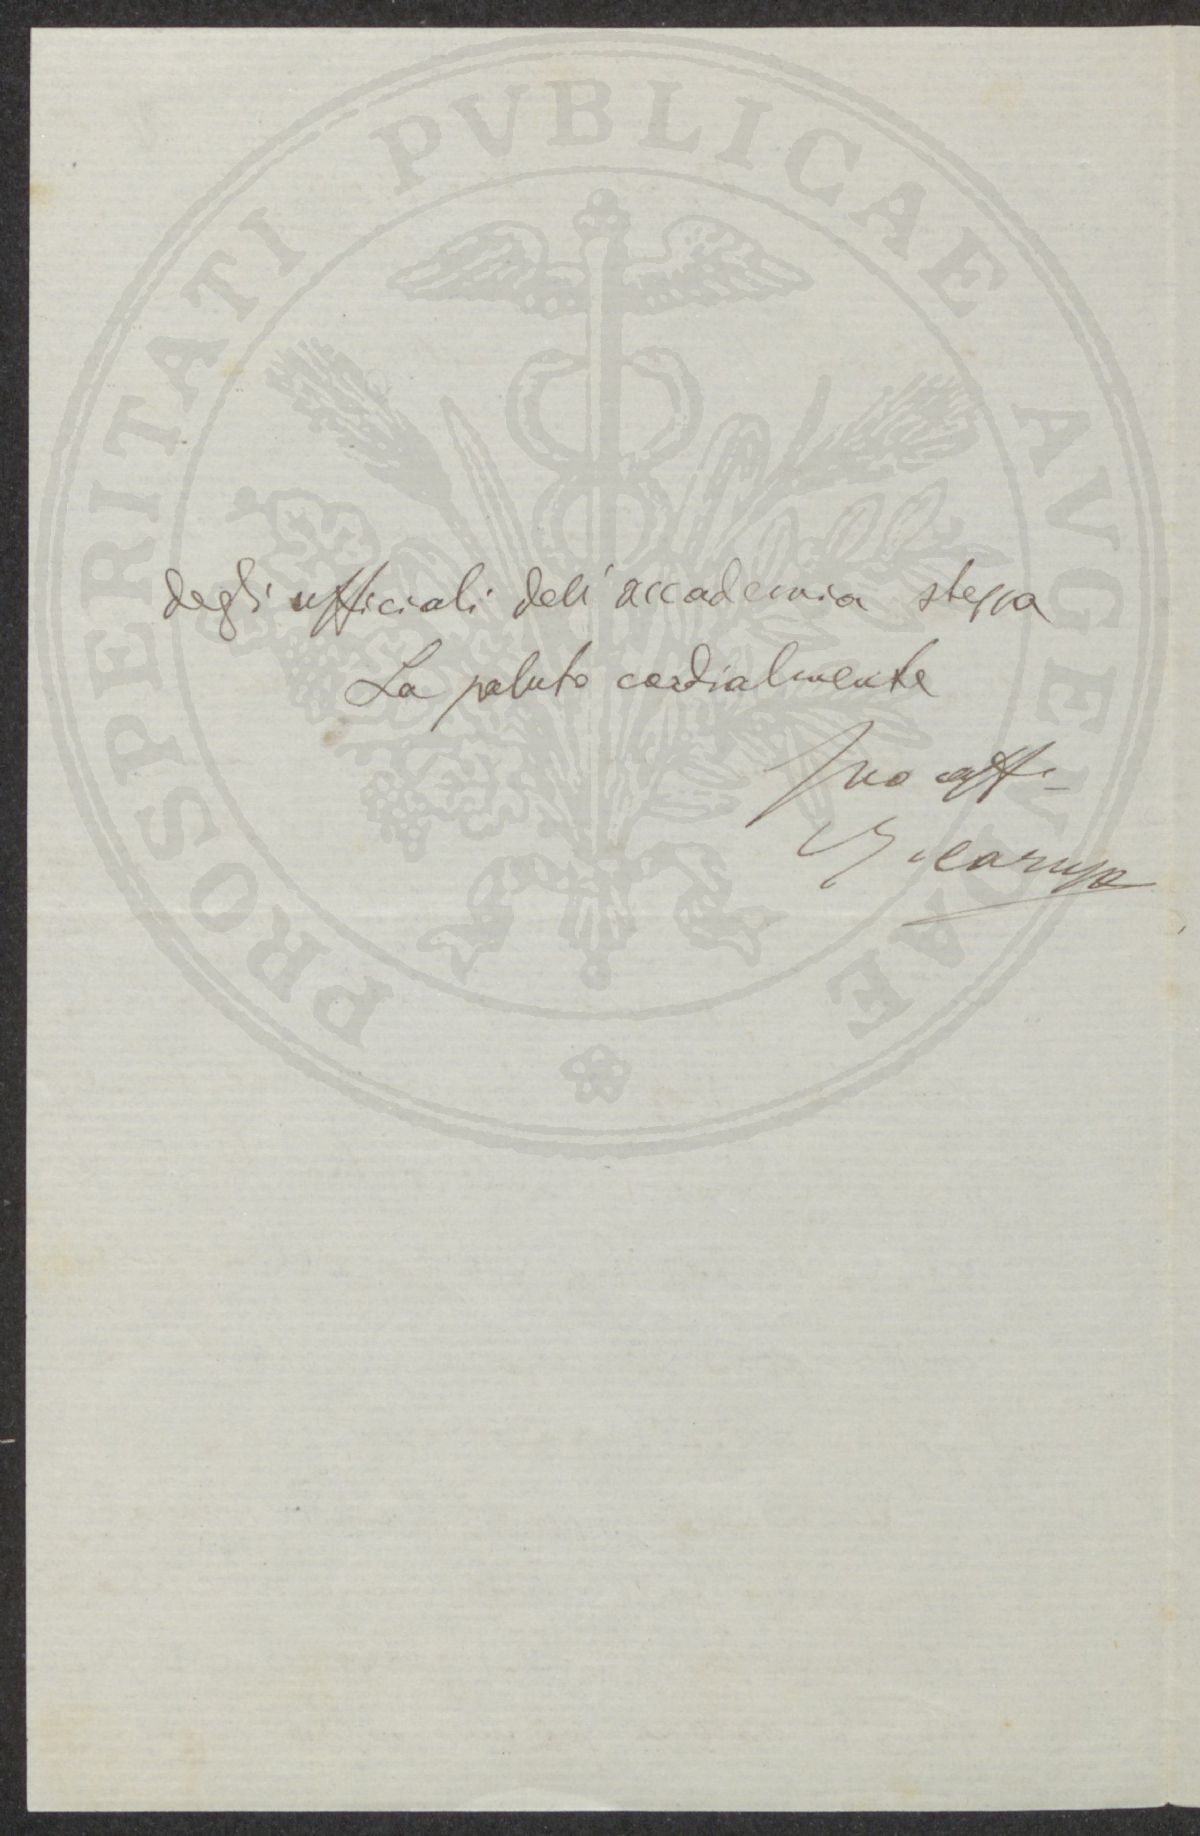 PROSPERITATI PVBLICAE AVGENDAE
degli ufficiali dell'accademia stessa
La saluto cordialmente
Suo aff.